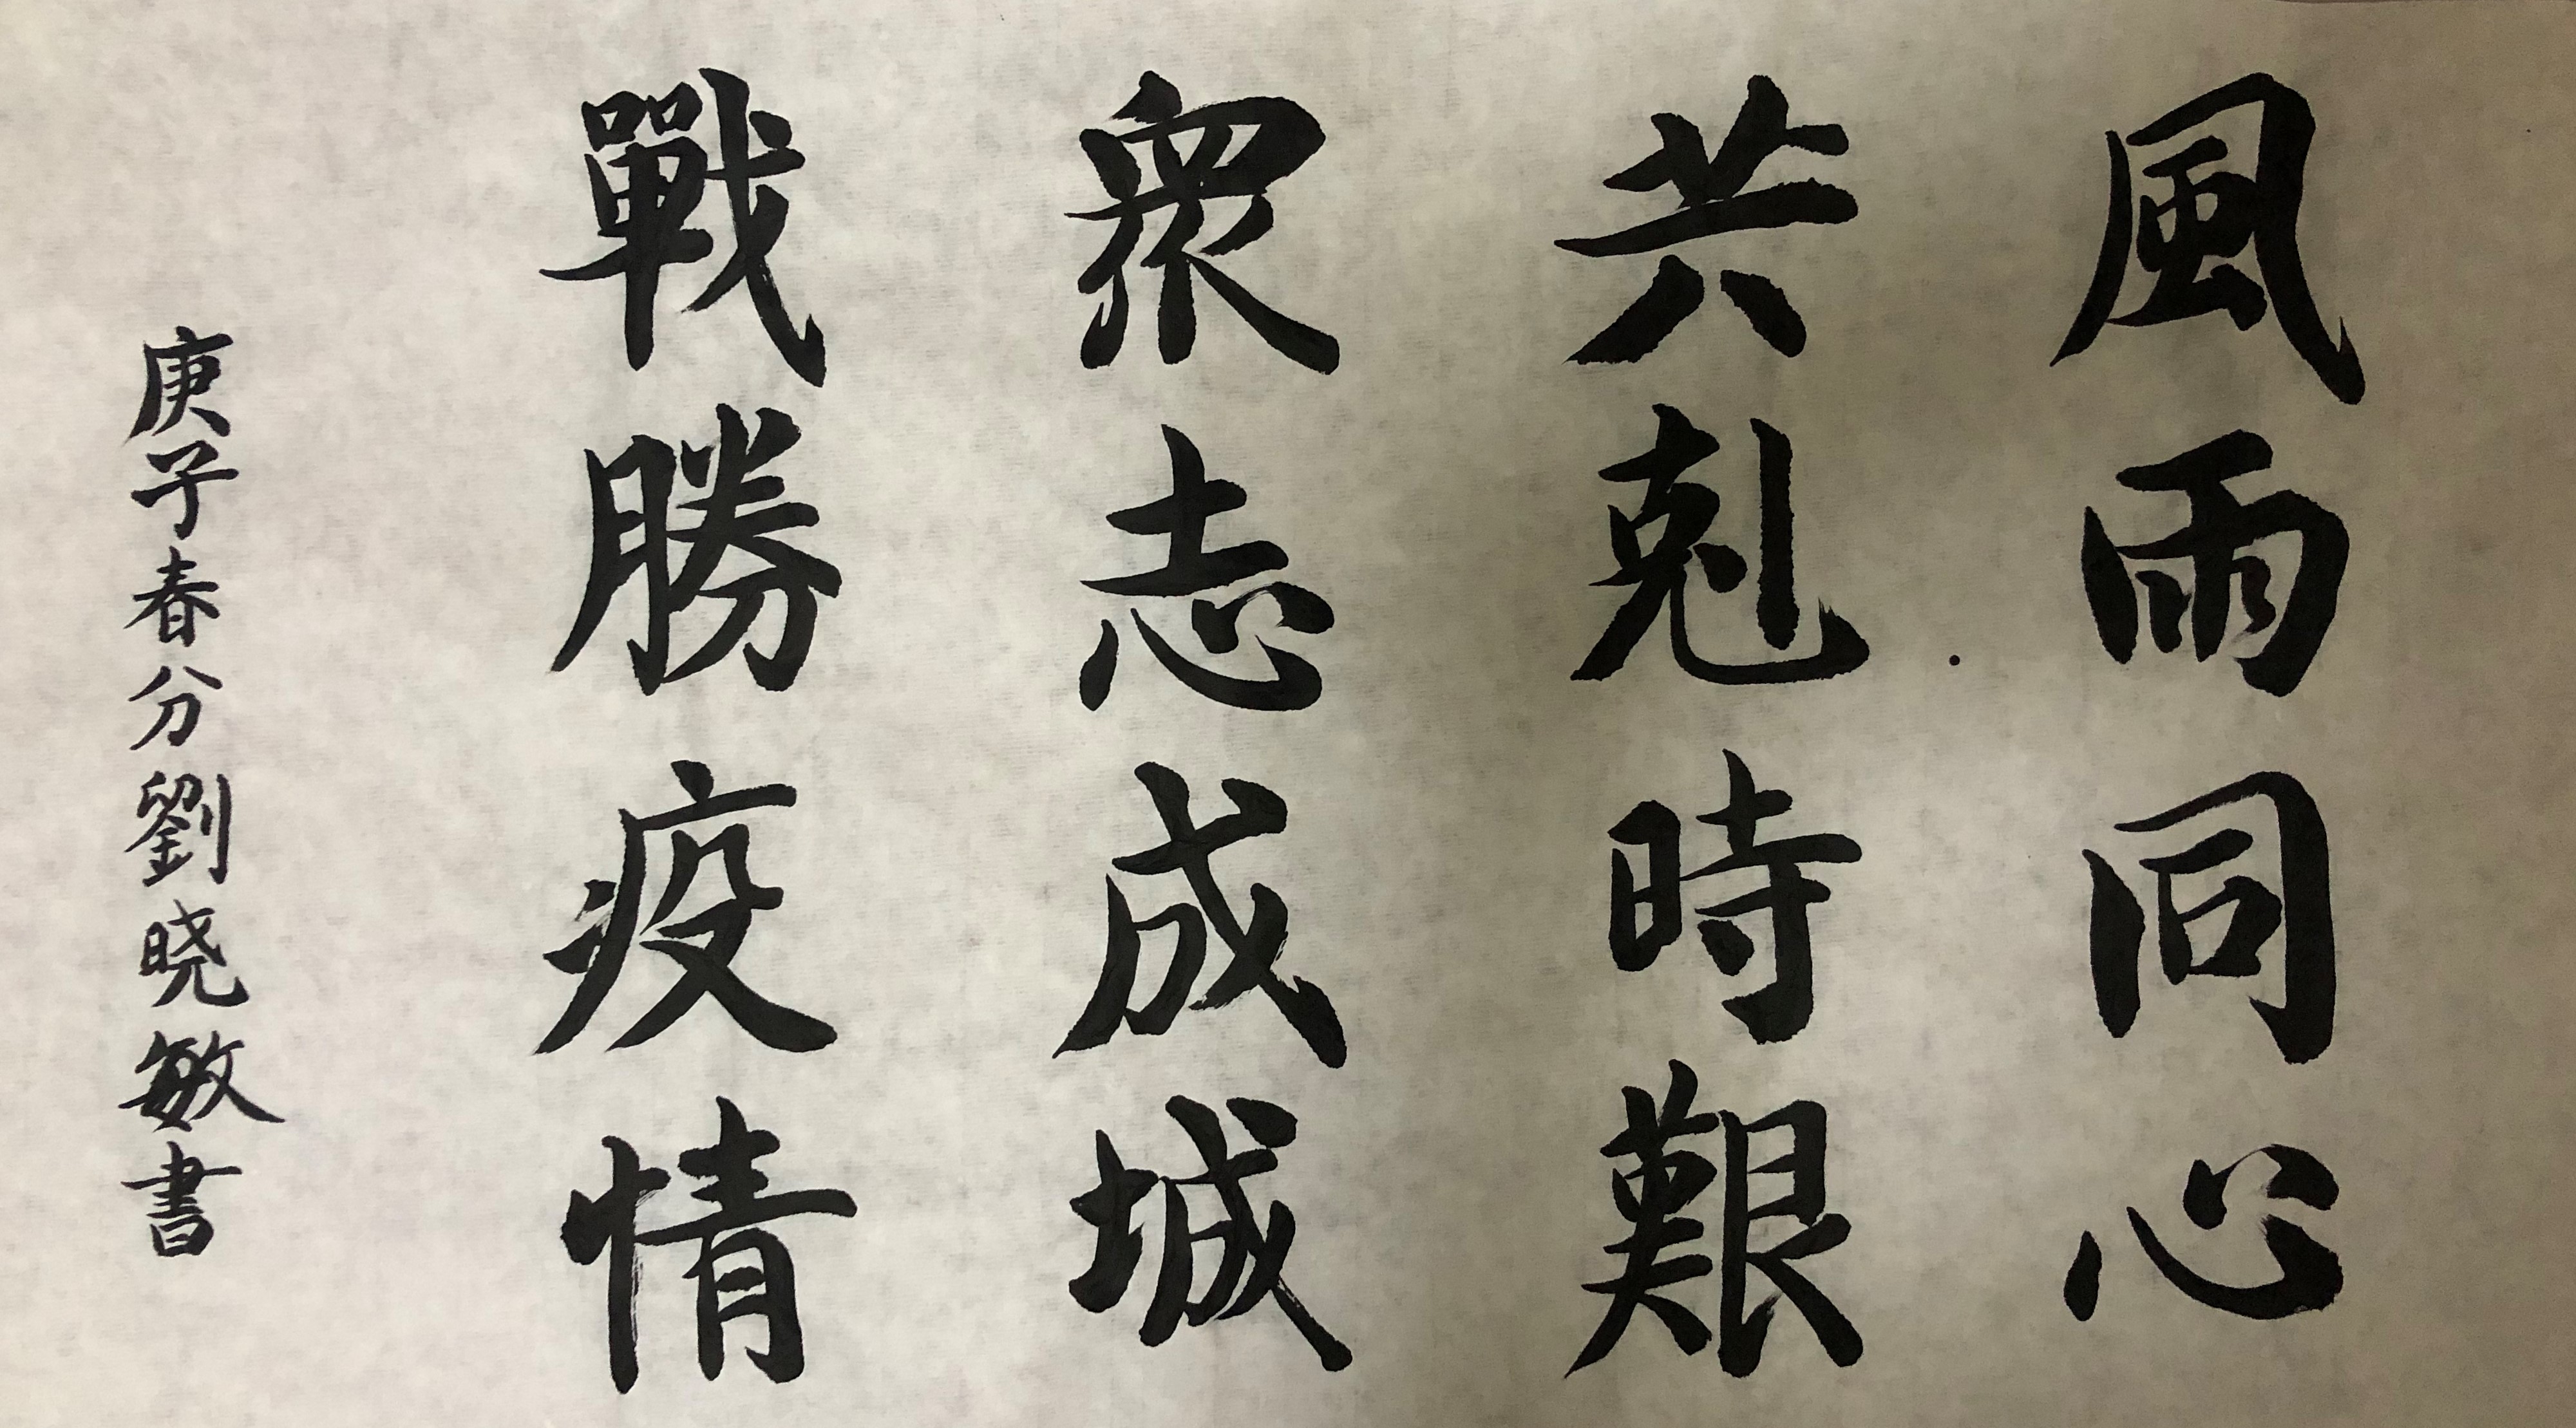 風雨同心
共剋時艱
衆志成城
戰勝疫情
庚子春分劉晓敏書